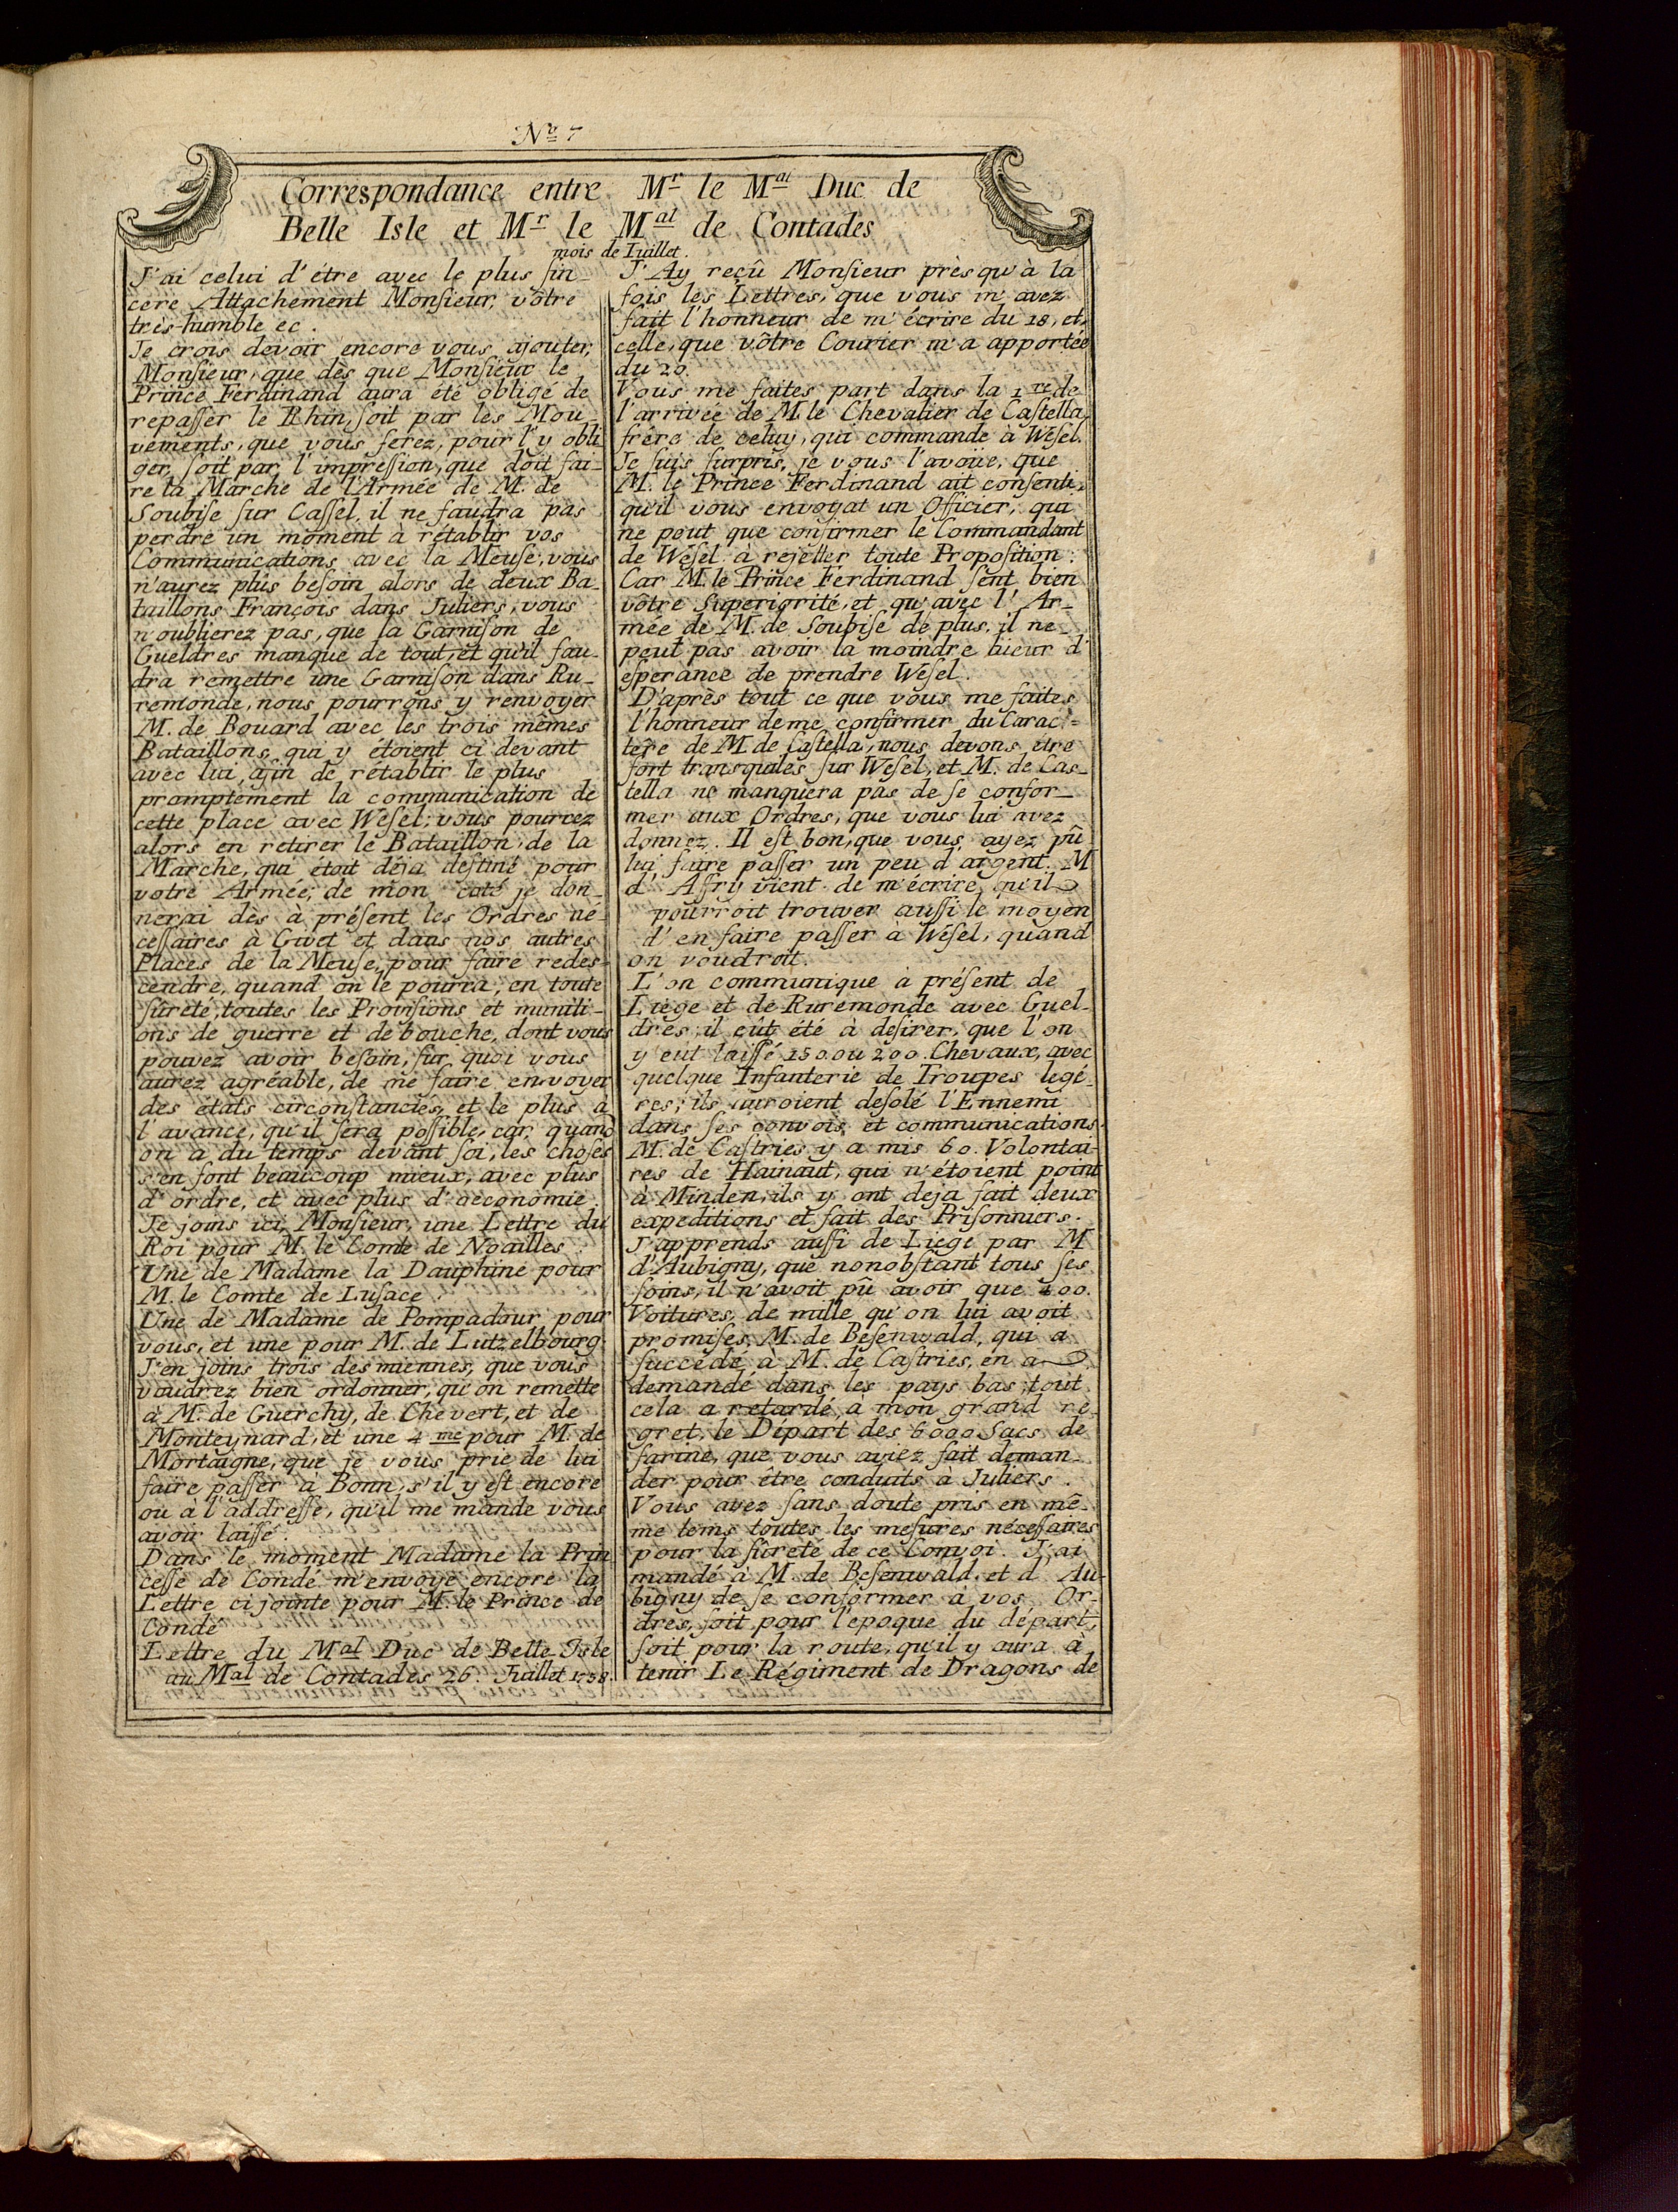 No 7
Correspondance entre Mr le Mal Duc de
Belle Isle et Mr le Mal de Contades
mois de Iuillet.
J'ai celui d'étre avec le plus ſin-
cere Attachement Monſieur, vôtre
très-humble ec.
Je crois devoir encore vous ajouter,
Monſieur, que dès que Monſieur le
Prince Ferdinand aura été obligé de
repaſſer le Rhin, ſoit par les Mou-
vements, que vous ferez, pour l'y obli
ger, ſoit par l'impreſſion, que doit fai-
re la Marche de l'Armée de M. de
Soubiſe ſur Caſſel, il ne faudra pas
perdre un moment à rétablir vos
Communications avec la Meuſe, vous
n'aurez plus beſoin alors de deux Ba-
taillons François dans Juliers, vous
n'oublierez pas, que la Garniſon de
Gueldres manque de tout, et qu'il fau-
dra remettre une Garniſon dans Ru-
remonde, nous pourrons y renvoyer
M. de Bouard avec les trois mêmes
Bataillons, qui y étoient ci devant
avec lui, afin de rétablir le plus
promptement la communication de
cette place avec Weſel; vous pourrez
alors en retirer le Bataillon de la
Marche, qui étoit déja deſtiné pour
votre Armée; de mon coté je don-
nerai dès à préſent les Ordres né-
ceſſaires à Givet et dans nos autres
Places de la Meuſe, pour faire redes-
cendre, quand on le pourra, en toute
ſûreté, toutes les Proviſions et muniti-
ons de guerre et de bouche, dont vous
pouvez avoir beſoin, ſur quoi vous
aurez agréable, de me faire envoyer
des états circonſtanciés, et le plus à
l'avance, qu'il ſera poſſible, car quand
on a du temps devant ſoi, les choſes
s'en font beaucoup mieux, avec plus
d'ordre, et avec plus d'oeconomie.
Je joins ici, Monſieur, une Lettre du
Roi pour M. le Comte de Noailles.
Une de Madame la Dauphine pour
M. le Comte de Luſace.
Une de Madame de Pompadour pour
vous, et une pour M. de Lutzelbourg.
J'en joins trois des miennes, que vous
voudrez bien ordonner, qu'on remette
à M. de Guerchy, de Chevert, et de
Monteynard, et une 4 me pour M. de
Mortaigne, que je vous prie de lui
faire paſſer à Bonn, s'il y eſt encore
ou à l'addreſſe, qu'il me mande vous
avoir laiſſé.
Dans le moment Madame la Prin
ceſſe de Condé m'envoye encore la
Lettre ci jointe pour M. le Prince de
Condé
Lettre du Mal Duc de Belle-Isle
au Mal de Contades 26. Juillet 1758.
J'Ay reçû Monſieur près qu'à la
fois les Lettres, que vous m'avez
fait l'honneur de m'écrire du 18, et
celle, que vôtre Courier m'a apportée
du 20.
Vous me faites part dans la 1re de
l'arrivée de M. le Chevalier de Caſtella,
frére de celuy, qui commande à Weſel.
Je ſuis ſurpris, je vous l'avoüe, que
M. le Prince Ferdinand ait conſenti,
qu'il vous envoyat un Officier, qui
ne peut que confirmer le Commandant
de Weſel à rejetter toute Propoſition:
Car M. le Prince Ferdinand ſent bien
vôtre Superiorité, et qu'avec l'Ar-
mée de M. de Soubiſe de plus, il ne
peut pas avoir la moindre lueur d'
eſperance de prendre Weſel.
D'après tout ce que vous me faites
l'honneur de me confirmer du Carac=
tère de M. de Caſtella, nous devons être
fort tranquiles ſur Weſel, et M. de Cas-
tella ne manquera pas de ſe confor-
mer aux Ordres, que vous lui avez
donnez. Il eſt bon, que vous ayez pû
lui faire paſſer un peu d'argent. M
d'Affry vient de m'écrire, qu'il
pourroit trouver auſſi le moyen
d'en faire paſſer à Weſel, quand
on voudroit.
L'on communique à préſent de
Liege et de Ruremonde avec Guel-
dres; il eût été à deſirer, que l'on
y eut laiſſé 150 ou 200. Chevaux, avec
quelque Infanterie de Troupes legé-
res; ils auroient deſolé l'Ennemi
dans ſes convois et communications.
M. de Caſtries y a mis 60. Volontai-
res de Hainaut, qui n'étoient point
à Minden, ils y ont deja fait deux
expeditions et fait des Priſonniers.
J'apprends auſſi de Liege par M
d'Aubigny, que nonobſtant tous ſes
ſoins, il n'avoit pû avoir que 400.
Voitures, de mille qu'on lui avoit
promiſes, M. de Beſenwald, qui a
ſuccédé à M. de Caſtries, en a
demandé dans les pays bas; tout
cela a retardé, a mon grand re-
gret, le Départ des 6000 Sacs de
farine, que vous aviez fait deman-
der pour être conduits à Juliers.
Vous avez ſans doute pris en mê-
me tems toutes les meſures néceſſaires
pour la ſûreté de ce Convoi. J'ai
mandé à M. de Beſenwald, et d'Au-
bigny de ſe conformer à vos Or-
dres, ſoit pour l'epoque du départ,
ſoit pour la route, qu'il y aura à
tenir Le Régiment de Dragons de